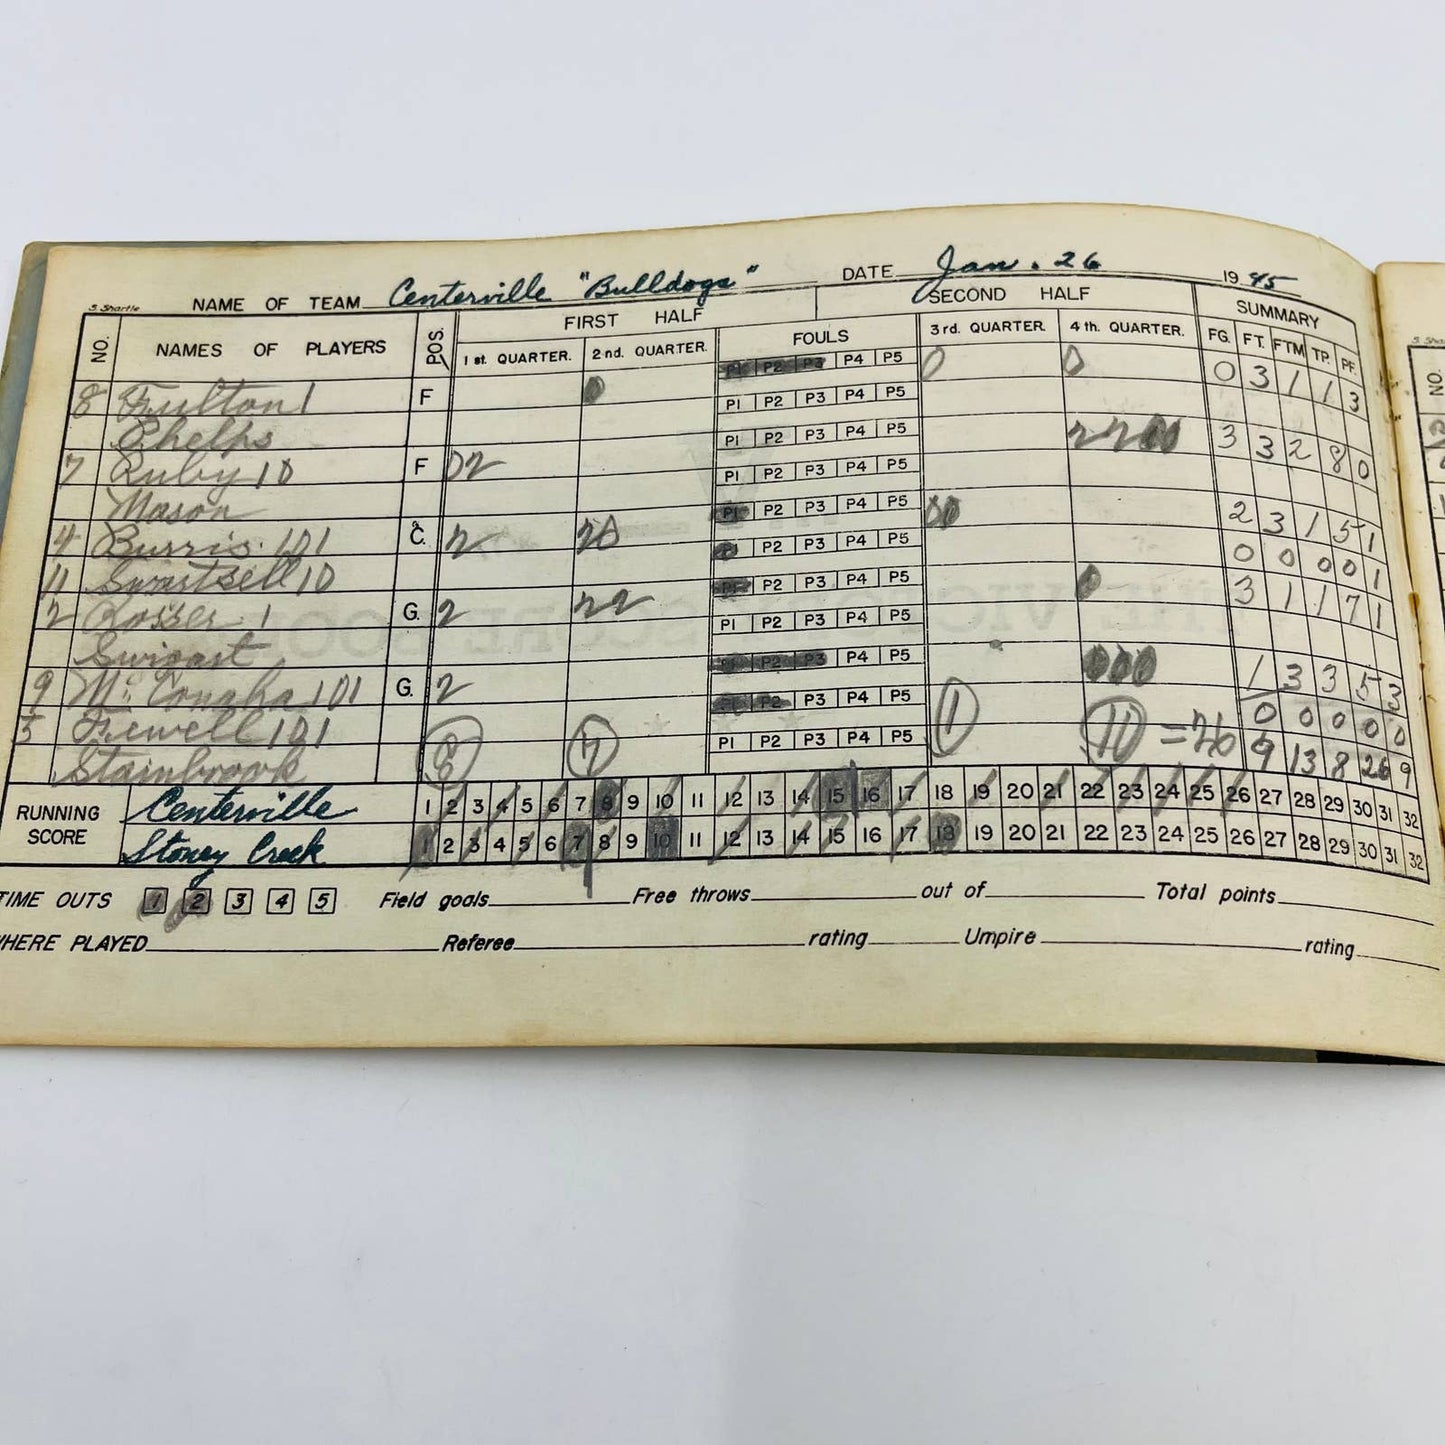 S. Shartle NAME OF TEAM Centerville "Bulldogs" DATE Jan. 26 1945
NO. NAMES OF PLAYERS POS. FIRST HALF SECOND HALF SUMMARY
1 st. QUARTER. 2 nd. QUARTER. FOULS 3 rd. QUARTER. 4 th. QUARTER. FG. FT. FTM TP. PF.
8 Fulton 1 F 0 P1 P2 P3 P4 P5 0 0 0 3 1 1 3
Phelps P1 P2 P3 P4 P5
7 Ruby 10 F 02 P1 P2 P3 P4 P5 2200 3 3 2 8 0
Mason P1 P2 P3 P4 P5
4 Burris 101 C. 2 20 P1 P2 P3 P4 P5 00 2 3 1 5 1
11 Swartsell 10 P1 P2 P3 P4 P5 0 0 0 0 1
2 Rosser 1 G. 2 22 P1 P2 P3 P4 P5 0 3 1 1 7 1
Swigart P1 P2 P3 P4 P5
9 Mc Conaha 101 G. 2 P1 P2 P3 P4 P5 000 1 3 3 5 3
5 101 P1 P2 P3 P4 P5 0 0 0 0 0
Stainbrook 8 7 P1 P2 P3 P4 P5 1 10 = 26 9 13 8 26 9
RUNNING SCORE
Centerville 1 2 3 4 5 6 7 8 9 10 11 12 13 14 15 16 17 18 19 20 21 22 23 24 25 26 27 28 29 30 31 32
Stoney Creek 1 2 3 4 5 6 7 8 9 10 11 12 13 14 15 16 17 18 19 20 21 22 23 24 25 26 27 28 29 30 31 32
TIME OUTS 1 2 3 4 5 Field goals Free throws out of Total points
WHERE PLAYED Referee rating Umpire rating
NO.